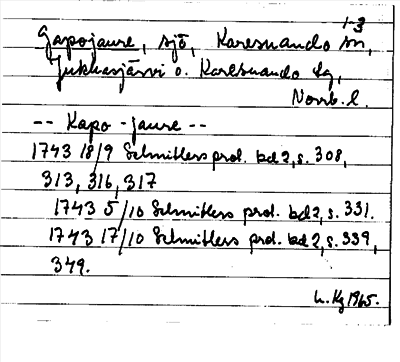 1-3
Gapojaure, sjö, Karesuando sn,
Jukkasjärvi o. Karesuando tg,
Norrb. l.
-- Kapo - jaure --
1743 18/9 Schnitlers prot. bd 2, s. 308,
313, 316, 317
1743 5/10 Schnitlers prot. bd 2, s. 331.
1743 17/10 Schnitlers prot. bd 2, s. 339,
349.
1965.